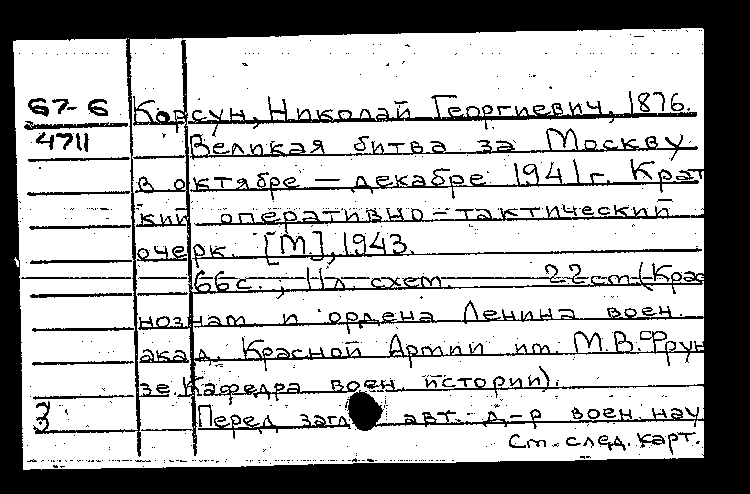 67-6 Корсун, Николай Георгиевич, 1876.
4711 Великая битва за Москву
в октябре — декабре 1941г. Крат
кий оперативно-тактический
очерк. [М], 1943.
66с.; 11л. схем. 22см (Крас
нознам. и ордена Ленина воен.
акад. Красной Армии им. М.В. Фрун
зе. Кафедра воен. истории).
3 Перед загл. авт. д-р воен. нау
См. след. карт.